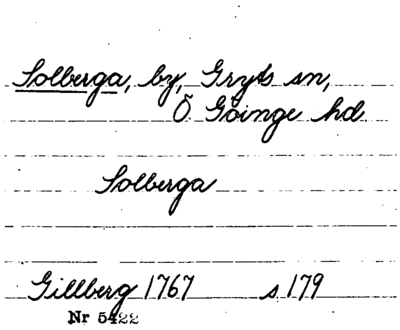 Solberga, by, Gryts sn,
Ö Göinge hd
Solberga
Gillberg 1767 s 179
Nr 5422